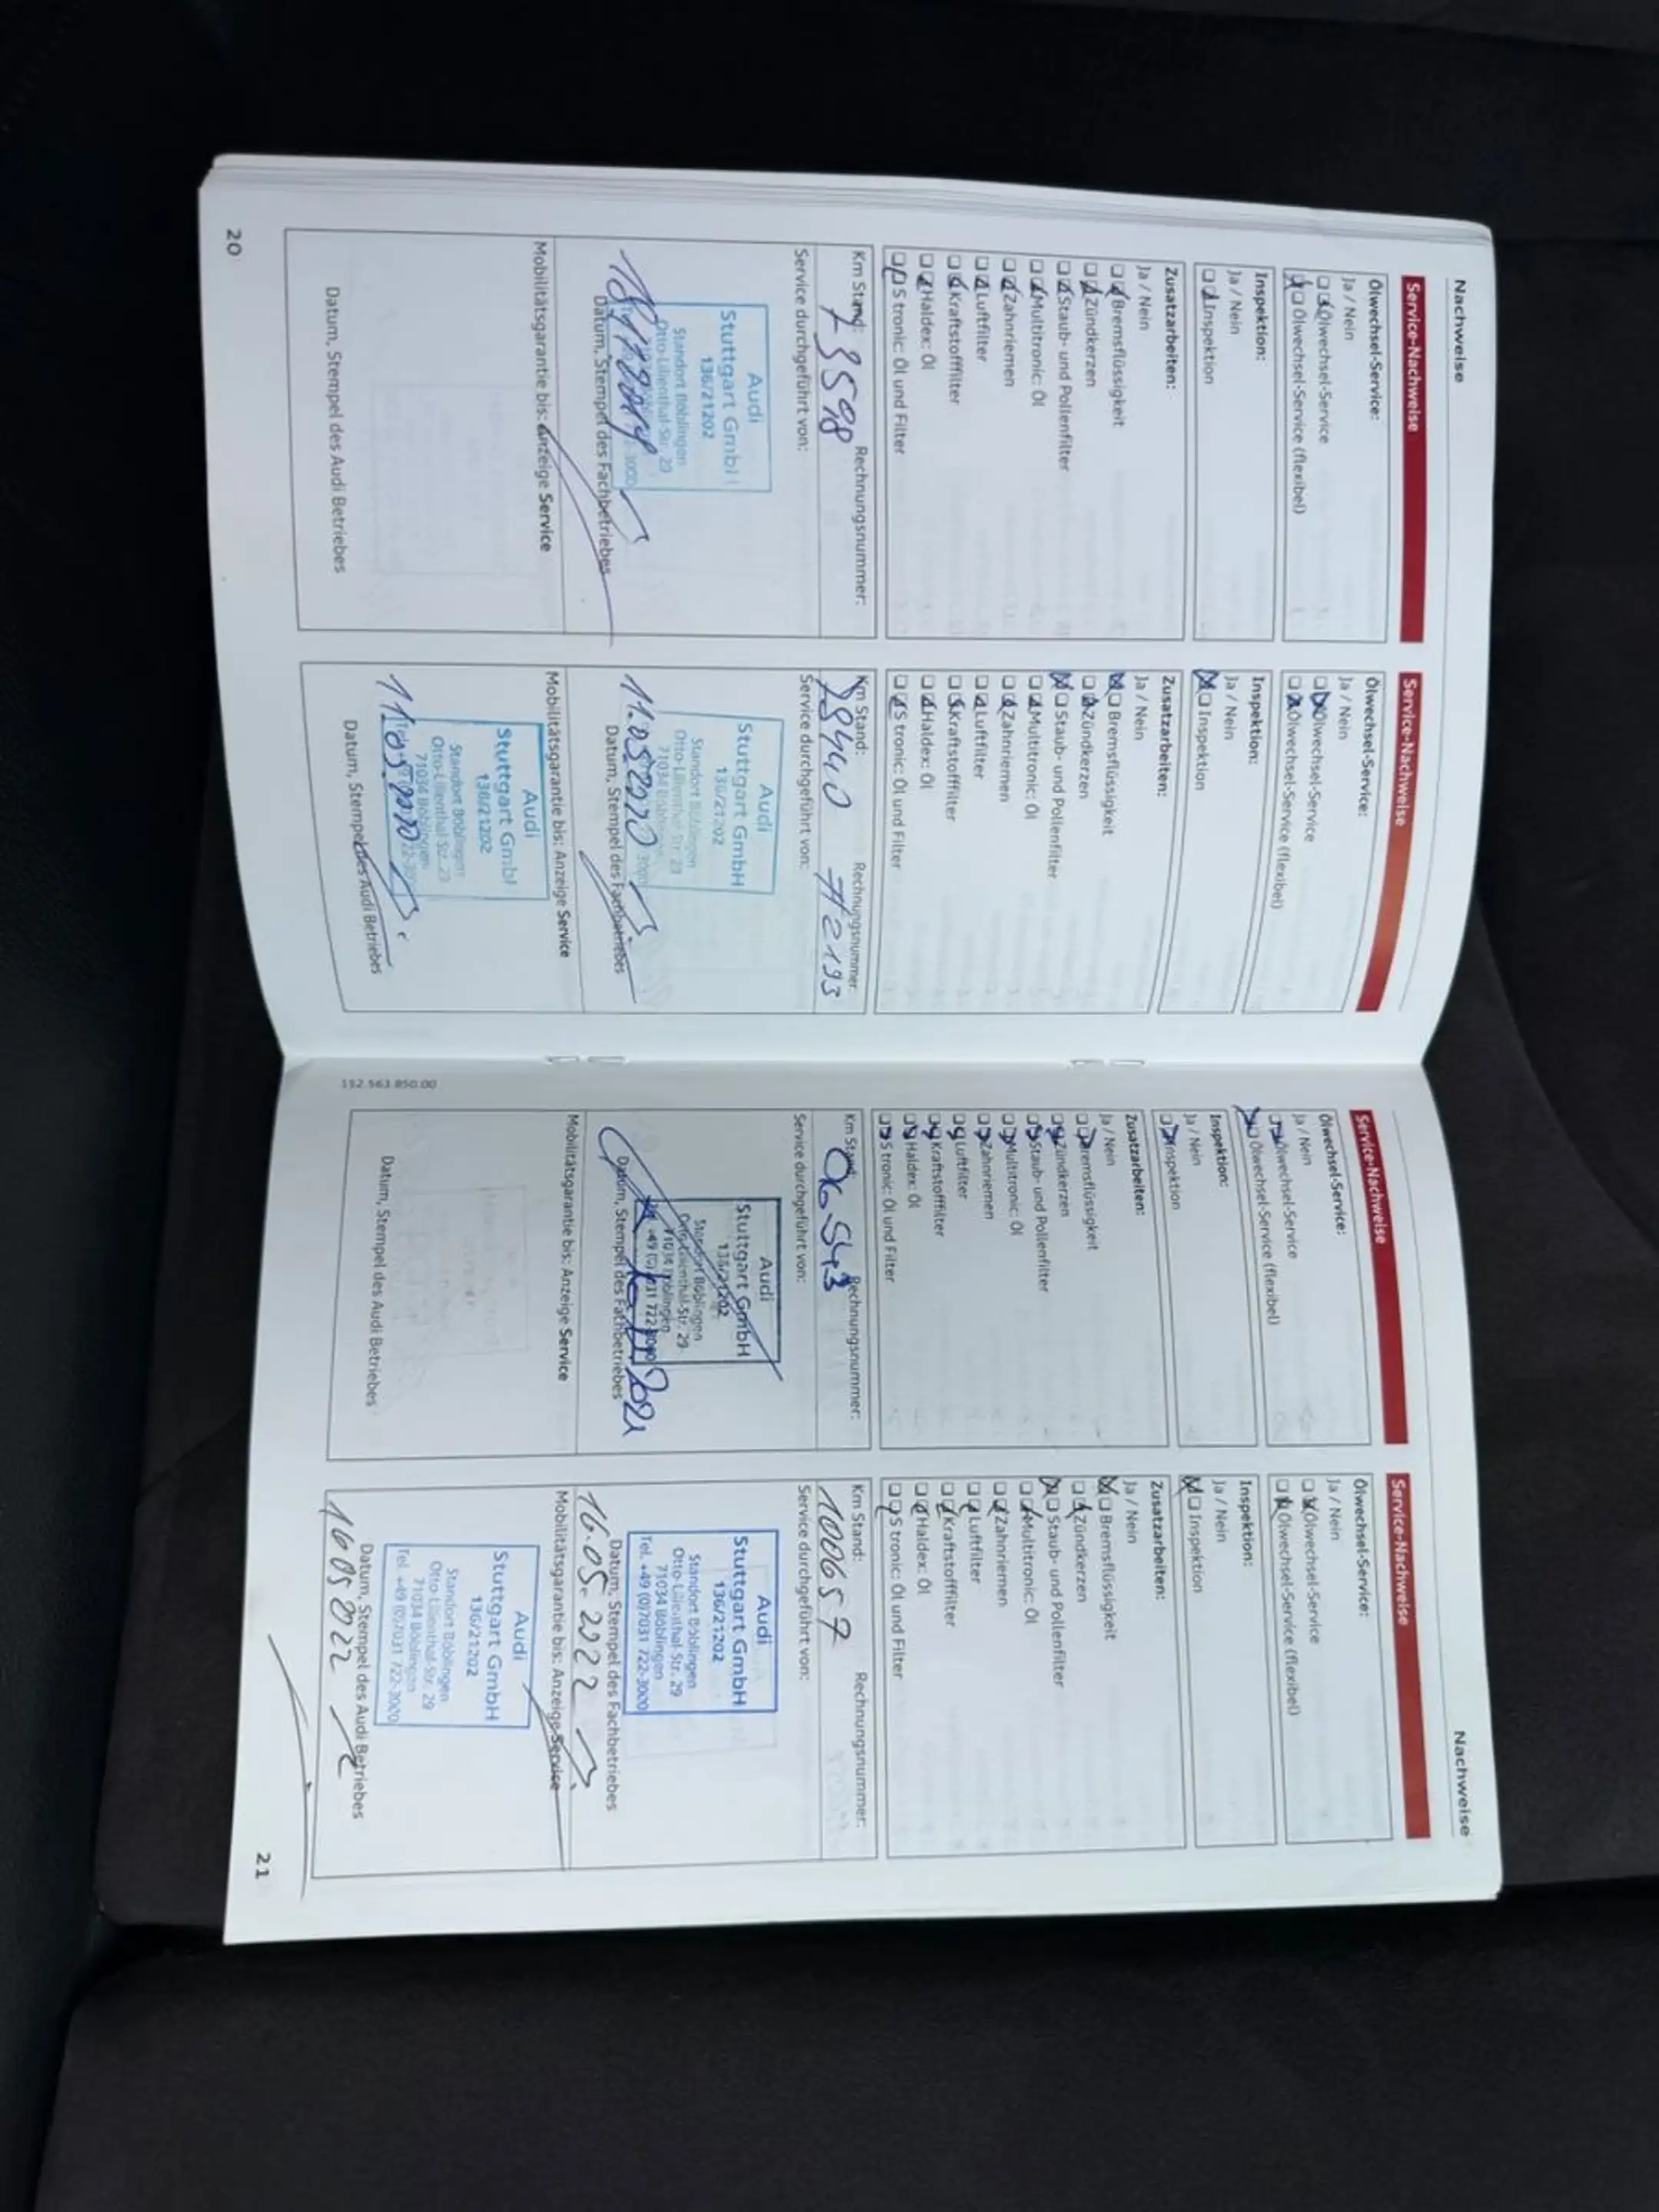 Nachweise
Service-Nachweise
Ölwechsel-Service:
Ja / Nein
Ölwechsel-Service
Ölwechsel-Service (flexibel)
Inspektion:
Ja / Nein
Inspektion
Zusatzarbeiten:
Ja / Nein
Bremsflüssigkeit
Zündkerzen
Staub- und Pollenfilter
Multitronic: Öl
Zahnriemen
Luftfilter
Kraftstofffilter
Haldex: Öl
S tronic: Öl und Filter
Km Stand: Rechnungsnummer:
73598
Service durchgeführt von:
Audi
Stuttgart GmbH
136/21202
Standort Böblingen
Otto-Lilienthal-Str. 29
Datum, Stempel des Fachbetriebes
Mobilitätsgarantie bis: Anzeige Service
Datum, Stempel des Audi Betriebes
20
Service-Nachweise
Ölwechsel-Service:
Ja / Nein
Ölwechsel-Service
Ölwechsel-Service (flexibel)
Inspektion:
Ja / Nein
Inspektion
Zusatzarbeiten:
Ja / Nein
Bremsflüssigkeit
Zündkerzen
Staub- und Pollenfilter
Multitronic: Öl
Zahnriemen
Luftfilter
Kraftstofffilter
Haldex: Öl
S tronic: Öl und Filter
Km Stand: Rechnungsnummer:
78940
Service durchgeführt von:
Audi
Stuttgart GmbH
136/21202
Standort Böblingen
Otto-Lilienthal-Str. 29
71034 Böblingen
11.05.2020
Datum, Stempel des Fachbetriebes
Mobilitätsgarantie bis: Anzeige Service
Audi
Stuttgart GmbH
136/21202
Standort Böblingen
Otto-Lilienthal-Str. 29
71034 Böblingen
11.05.2020
Datum, Stempel des Audi Betriebes
152.563.850.00
Service-Nachweise
Ölwechsel-Service:
Ja / Nein
Ölwechsel-Service
Ölwechsel-Service (flexibel)
Inspektion:
Ja / Nein
Inspektion
Zusatzarbeiten:
Ja / Nein
Bremsflüssigkeit
Zündkerzen
Staub- und Pollenfilter
Multitronic: Öl
Zahnriemen
Luftfilter
Kraftstofffilter
Haldex: Öl
S tronic: Öl und Filter
Km Stand: Rechnungsnummer:
Service durchgeführt von:
Audi
Stuttgart GmbH
136/21202
Standort Böblingen
Otto-Lilienthal-Str. 29
71034 Böblingen
Datum, Stempel des Fachbetriebes
Mobilitätsgarantie bis: Anzeige Service
Datum, Stempel des Audi Betriebes
Nachweise
Service-Nachweise
Ölwechsel-Service:
Ja / Nein
Ölwechsel-Service
Ölwechsel-Service (flexibel)
Inspektion:
Ja / Nein
Inspektion
Zusatzarbeiten:
Ja / Nein
Bremsflüssigkeit
Zündkerzen
Staub- und Pollenfilter
Multitronic: Öl
Zahnriemen
Luftfilter
Kraftstofffilter
Haldex: Öl
S tronic: Öl und Filter
Km Stand: Rechnungsnummer:
100657
Service durchgeführt von:
Audi
Stuttgart GmbH
136/21202
Standort Böblingen
Otto-Lilienthal-Str. 29
71034 Böblingen
Tel. +49 (0)7031 722-3000
Datum, Stempel des Fachbetriebes
16.05.2022
Mobilitätsgarantie bis: Anzeige Service
Audi
Stuttgart GmbH
136/21202
Standort Böblingen
Otto-Lilienthal-Str. 29
71034 Böblingen
Tel. +49 (0)7031 722-3000
Datum, Stempel des Audi Betriebes
16052022
21